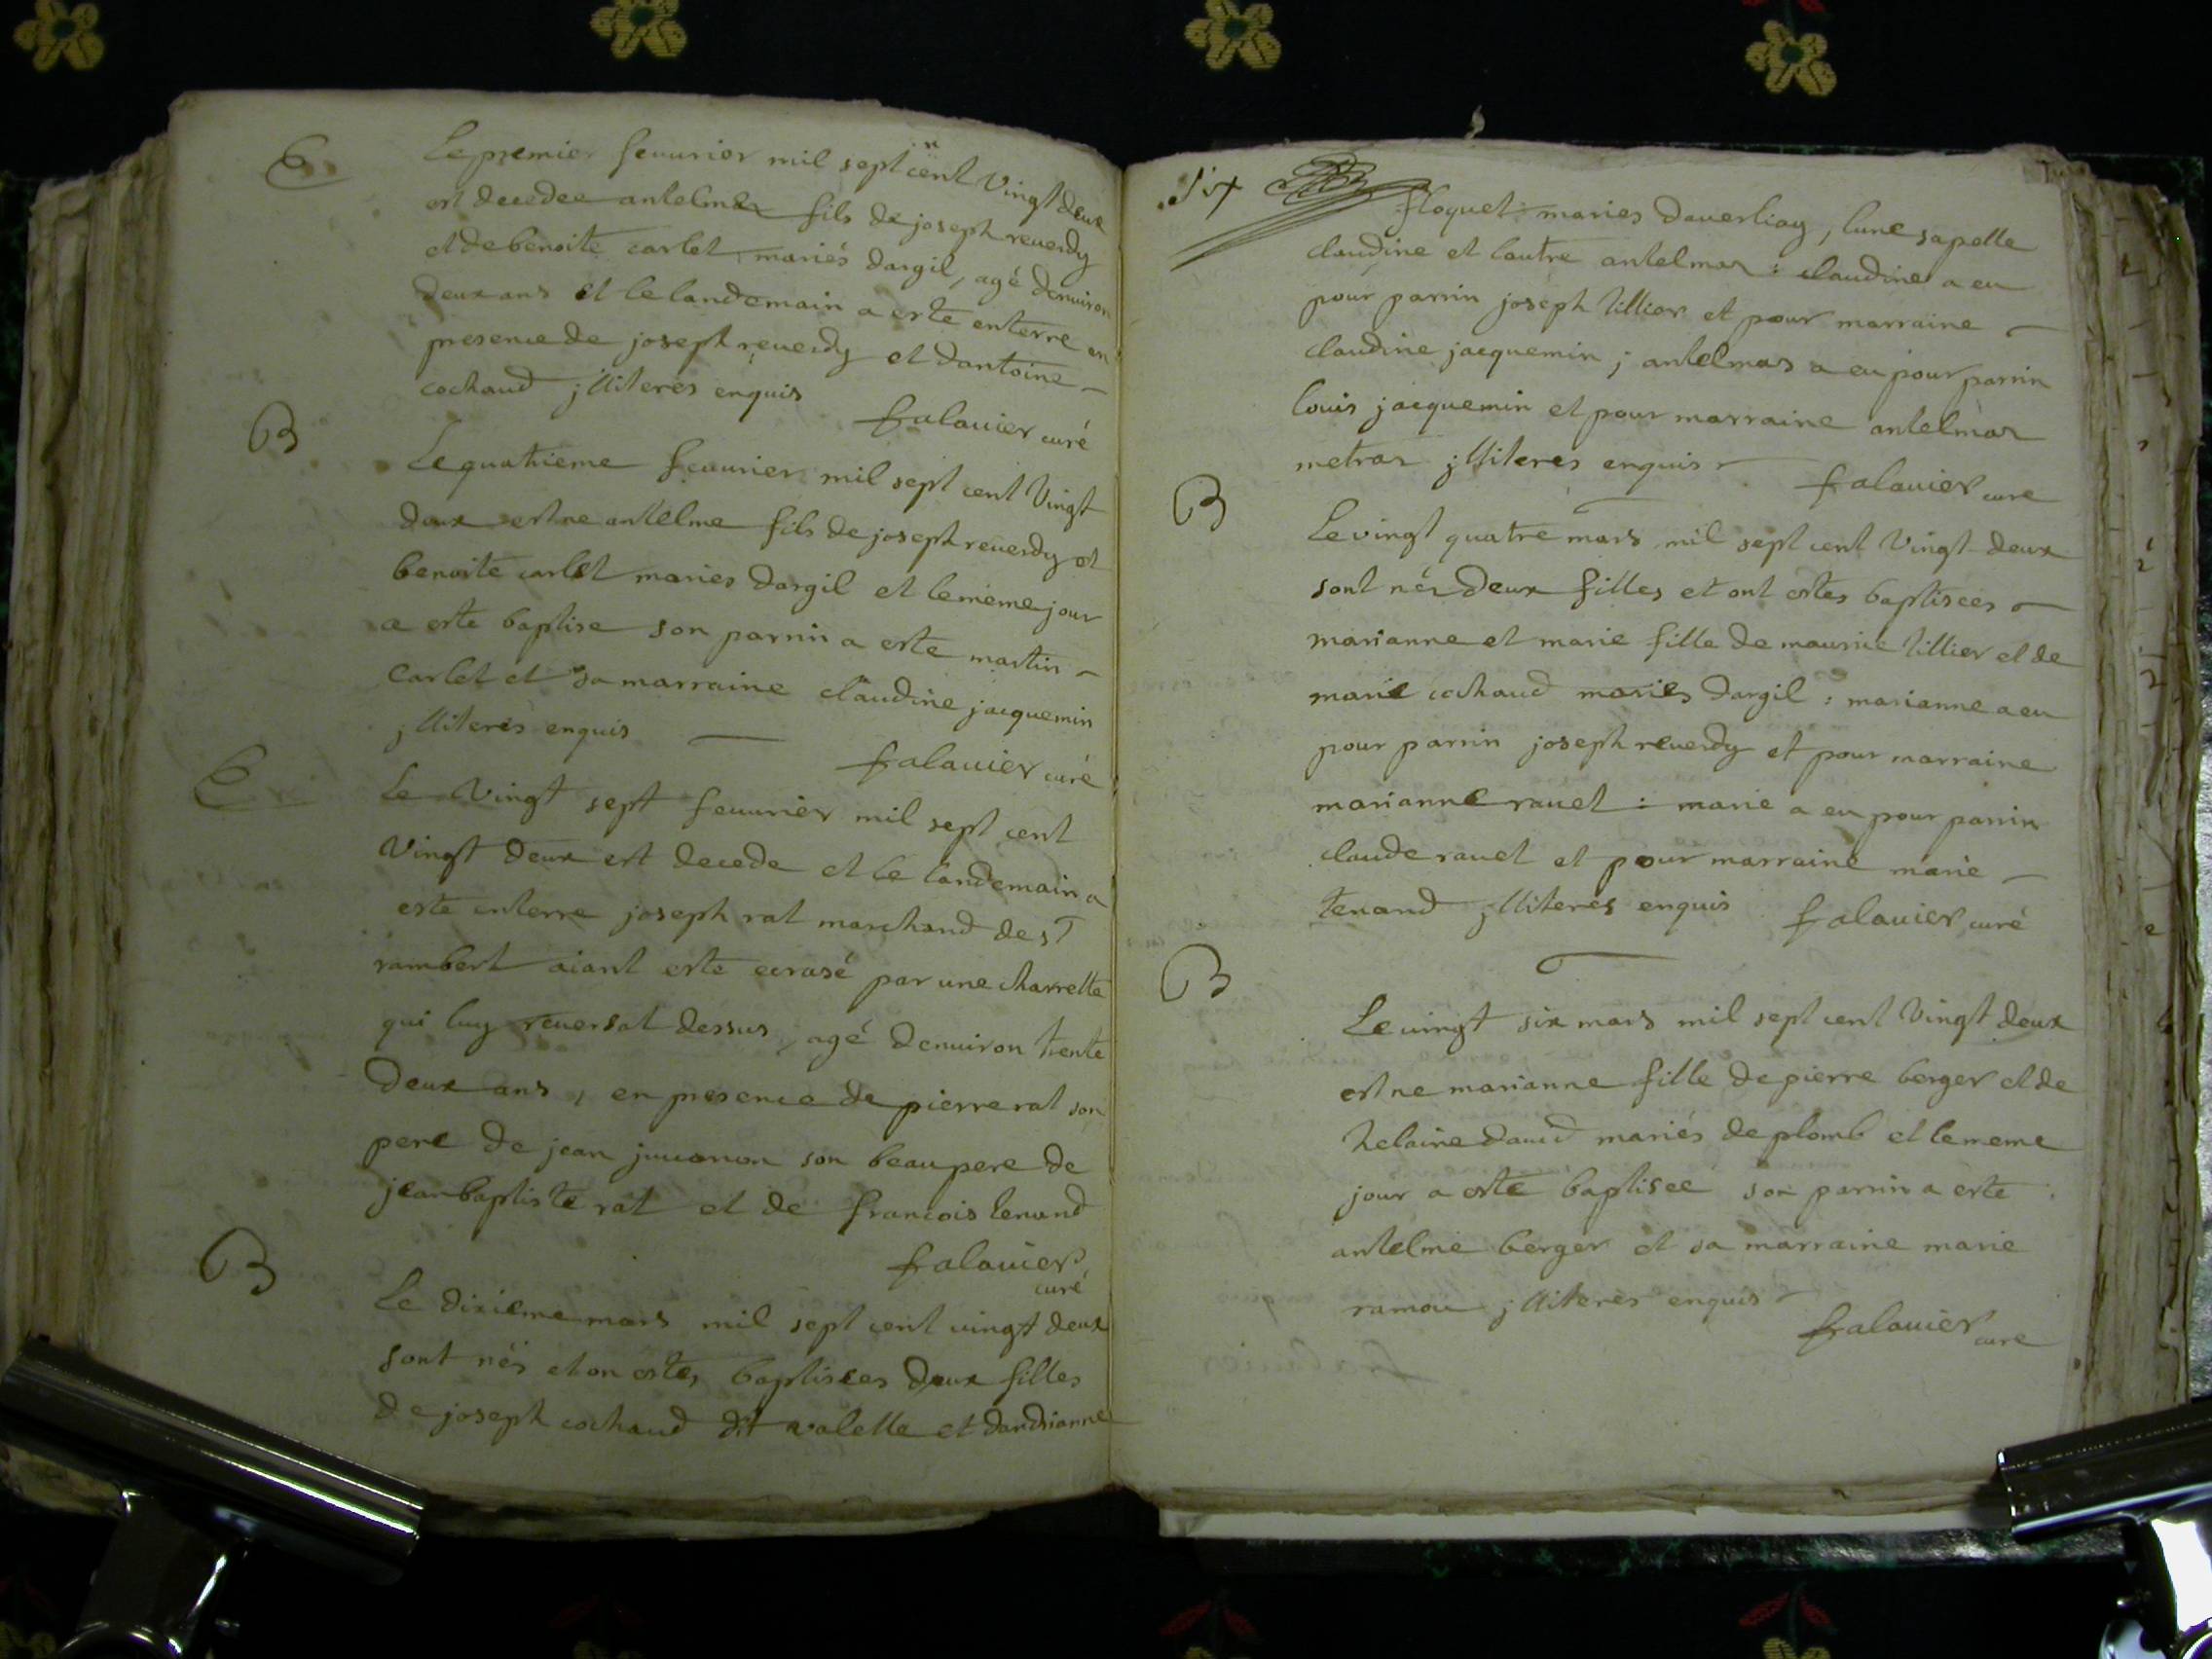 E
Le premier feuurier mil sept cent Vingt deux
est decedee antelme fils de joseph reuerdy
et de benoite carlet mariés dargil, agé denuiron
deux ans et le landemain a este enterre en
presence de joseph reuerdy et dantoine
cochaud jlliteres enquis
falauier curé
B
Le quatrieme feuurier mil sept cent Vingt
deux est ne antelme fils de joseph reuerdy et
benoite carlet maries dargil et le meme jour
a este baptise son parrin a este martin
Carlet et sa marraine claudine jacquemin
jlliteres enquis
falauier curé
E
Le Vingt sept feuurier mil sept cent
Vingt deux est decede et le landemain a
este enterre joseph rat marchand de sT
rambert aiant este ecrasé par une charrette
qui luy reuersat dessus, agé denuiron trente
deux ans, en presence de pierre rat son
pere de jean juuanon son beaupere de
jean baptiste rat et de francois tenand
falauier
curé
B
Le dixieme mars mil sept cent uingt deux
sont nés et on estes baptisees deux filles
de joseph cochaud dit valette et dandrianne
six
floquet maries dauerliay, lune sapelle
claudine et lautre antelmaz : claudine a eu
pour parrin joseph tillier et pour marraine
claudine jacquemin ; antelmaz a eu pour parrin
louis jacquemin et pour marraine antelmaz
metraz jlliteres enquis
falauier cure
B
Le vingt quatre mars mil sept cent Vingt deux
sont nés deux filles et ont estes baptisees
marianne et marie fille de maurice tillier et de
marie cochaud maries dargil : marianne a eu
pour parrin joseph reuerdy et pour marraine
marianne rauet : marie a eu pour parrin
claude rauet et pour marraine marie
tenand jlliteres enquis
falauier curé
B
Le uingt six mars mil sept cent Vingt deux
est ne marianne fille de pierre berger et de
helaine daud mariés de plomb et le meme
jour a este baptiseé son parrin a este
antelme berger et sa marraine marie
ramou jlliteres enquis
falauier cure